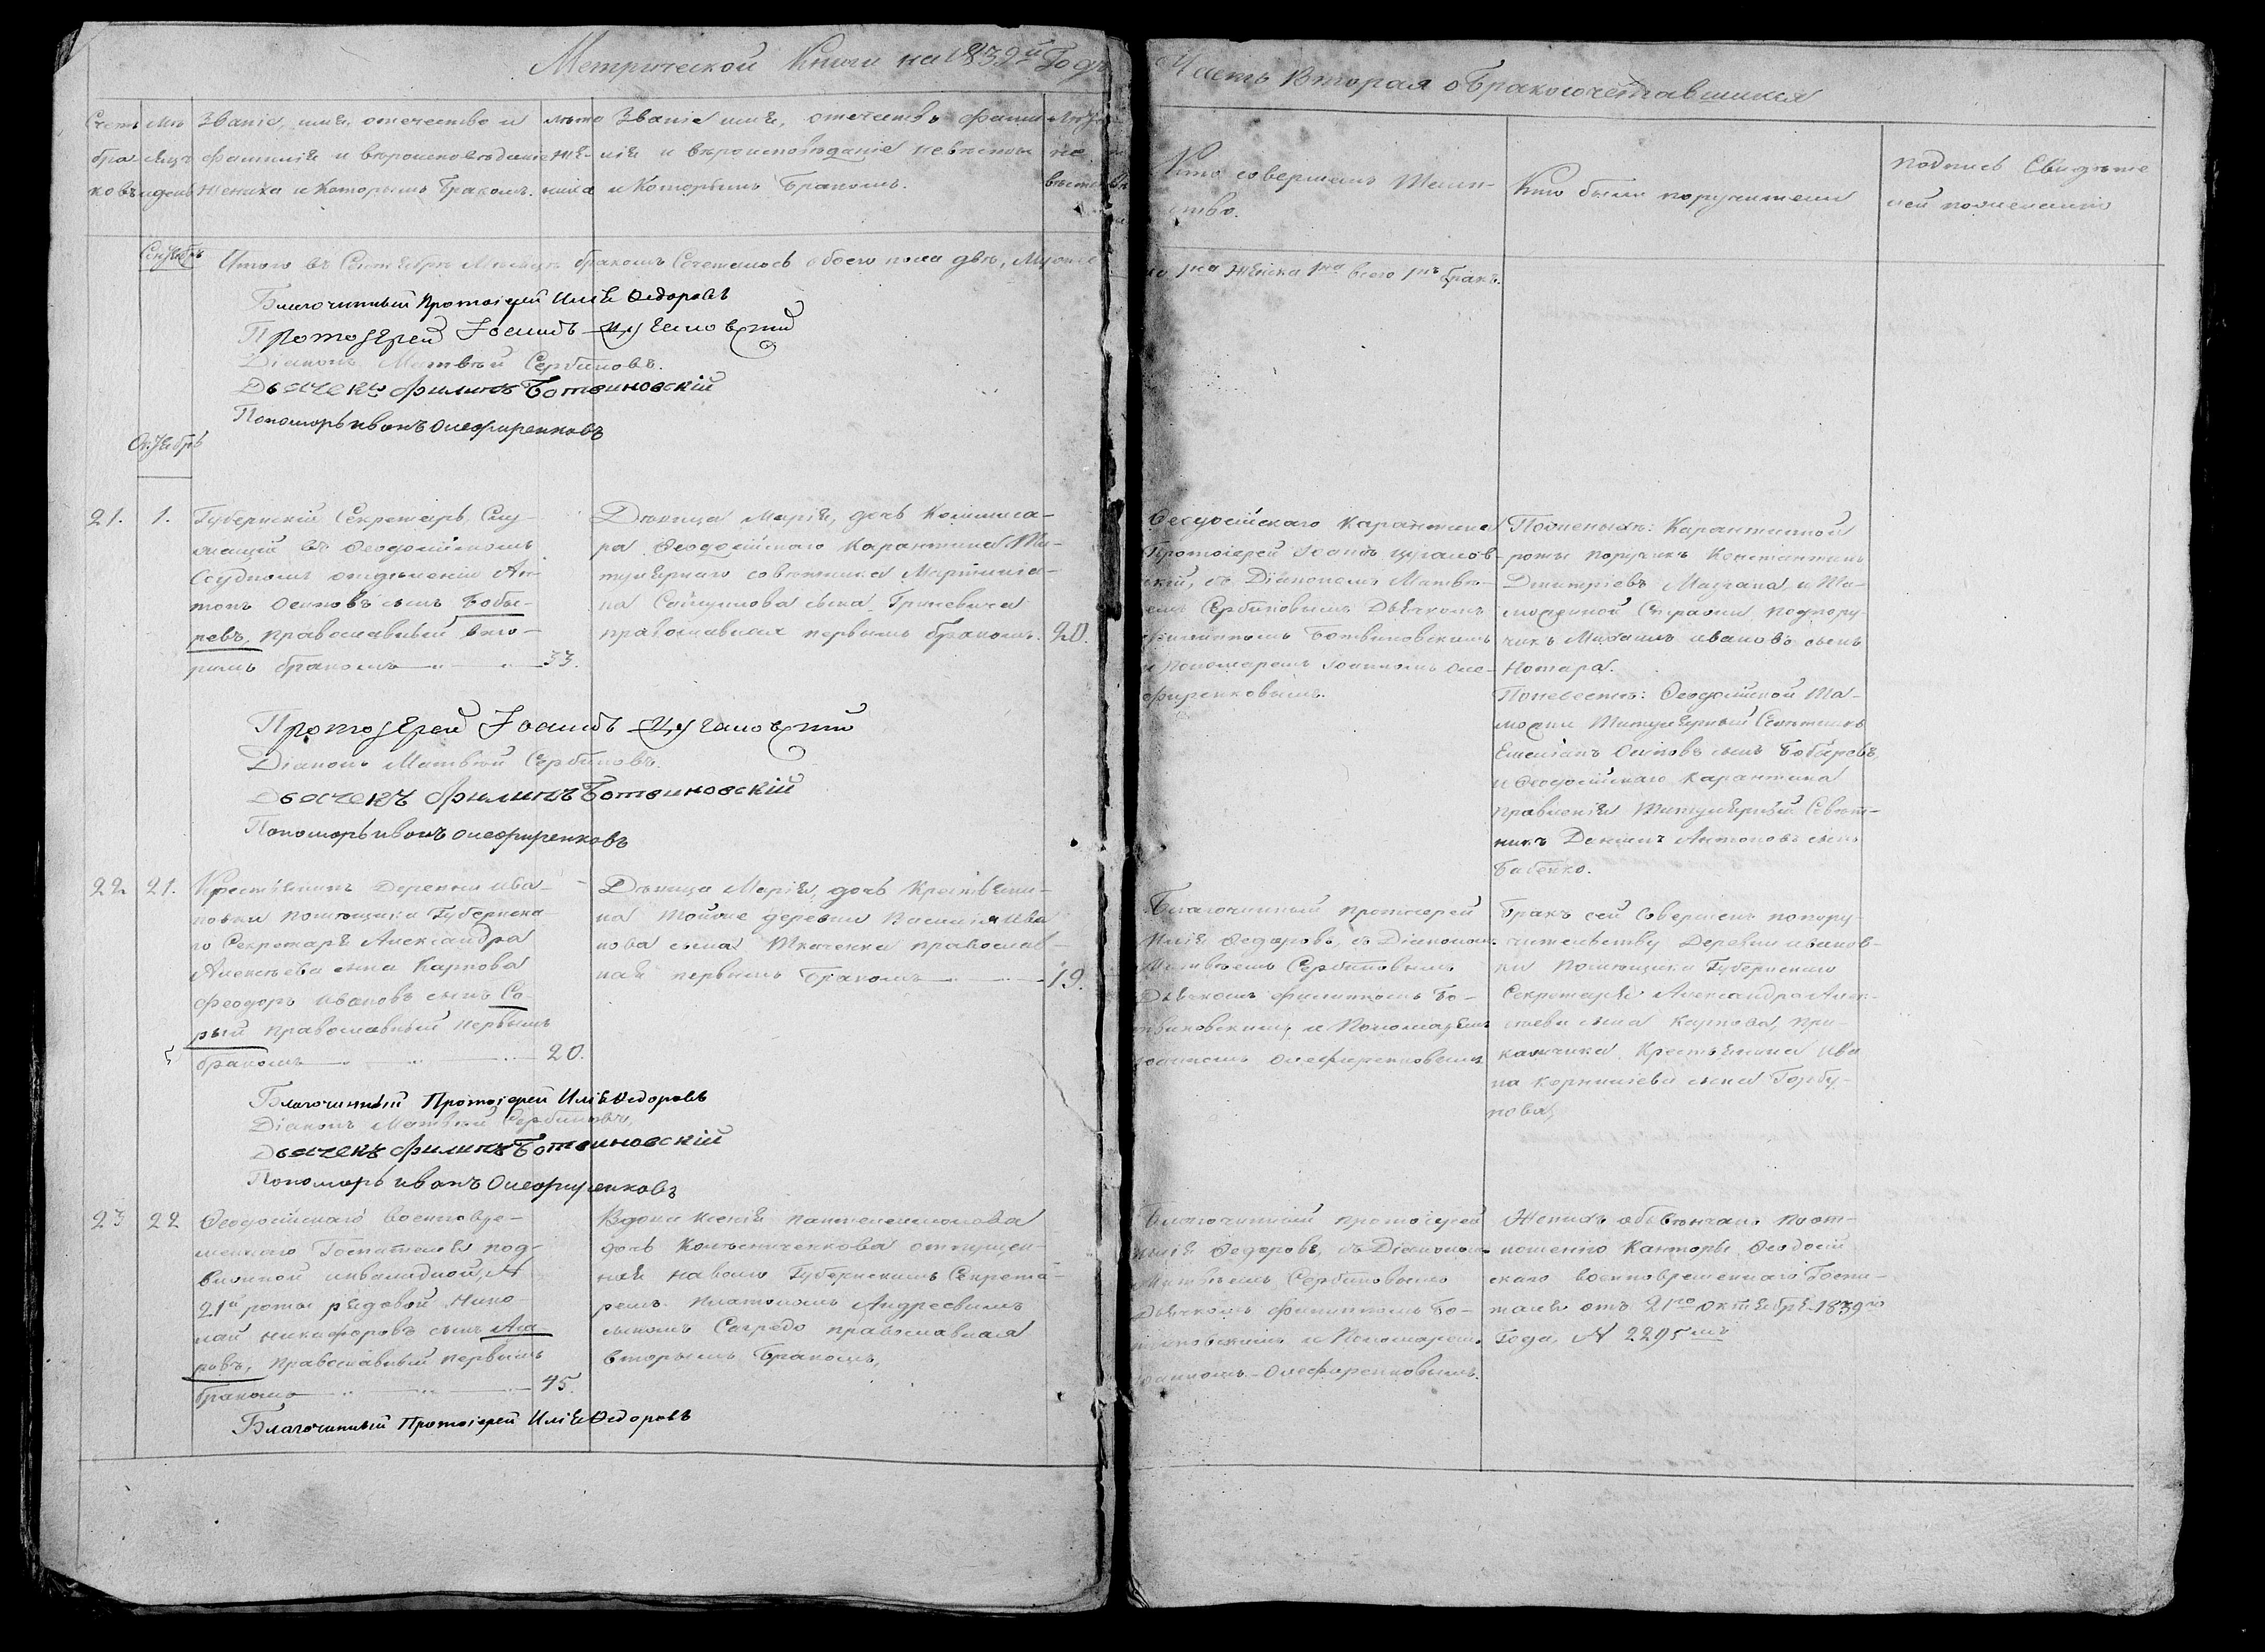 Метрической Книги на 1839й Годъ
Часть Вторая о Бракосочетавшихся
Счетъ
бра-
ковъ
мѣ
сяцъ
и день
Званіе, имя, отечество и
фамилія и вѣроисповѣданіе
жениха и которымъ бракомъ.
лѣта
же-
ниха
Званіе имя, отечество фами
лія и вѣроисповѣданіе невѣсты
и которымъ бракомъ.
лѣта
не
вѣсты
Кто совершалъ Таин-
ство.
Кто были поручители
подпись Свидѣте
лей по желанію
Сентябрь
Итого въ Сентябрѣ Мѣсяцѣ бракомъ Сочеталось обоего пола двѣ, Мужеска
1на женска 1на всего 1нъ бракъ.
Благочинный Протоіерей Илія Ѳедоровъ
Протоіерей Іоаннъ Цугановскій
Діаконъ Матвѣй Сербиновъ.
Дьячекъ Филипъ Ботвиновскій
Пономарь иванъ Олефиренковъ
Октябрь
21.
1.
Губернскій Секретарь, Слу-
жащій въ Ѳеодосійскомъ
Ссудномъ отдѣленіи Ан-
тонъ Осиповъ сынъ Бобы-
ревъ, православный вто-
рымъ бракомъ
33.
Дѣвица Марія, дочь Коммиса-
ра Ѳеодосійскаго Карантина Ти-
тулярнаго совѣтника Мартина-
на сына Гриневича
православная первымъ бракомъ.
20.
Ѳеодосійскаго Карантина
Протоіерей Іоаннъ Цуганов-
скій, съ Діакономъ Матвѣ-
емъ Сербиновымъ Дьячкомъ
Филиппомъ Ботвиновскимъ
и Пономаремъ Іоанномъ Оле-
фиренковымъ.
По женихѣ: Карантинной
роты поручикъ Константинъ
Дмитріевъ Мазгана, и Та-
моженной Стражи подпору-
чикъ Михаилъ ивановъ сынъ
Нотара.
По невестѣ: Ѳеодосійской Та-
можни Титулярный Совѣтникъ
Емеліанъ Осиповъ сынъ Бобыревъ,
и Ѳеодосійскаго Карантина
правленія Титулярный Совѣт-
никъ Даніилъ Антоновъ сынъ
Бабенко.
Протоіерей Іоаннъ Цугановскій
Діаконъ Матвѣй Сербиновъ.
Дьячекъ Филипъ Ботвиновскій
Пономарь иванъ Олефиренковъ
22
21.
Крестьянинъ деревни ива-
новки помѣщика Губернска-
го Секретаря Александра
Алексѣева сына Карпова
Феодоръ ивановъ сынъ Со-
рый православный первымъ
бракомъ
20.
Дѣвица Марія, дочь Крестьяни-
на Тойже деревни Василія ива
нова сына Ткаченка православ-
ная первымъ бракомъ
19.
Благочинный протоіерей
Илія Ѳедоровъ, съ Діакономъ
Матвѣемъ Сербиновымъ
Дьячкомъ Филиппомъ Бо-
твиновскимъ и Пономаремъ
Іоанномъ Олефиренковымъ
Бракъ сей Совершенъ по пору-
чительству деревни иванов-
ки Помѣщика Губернскаго
Секретаря Александра Алек-
сѣева сына Карпова, при-
кащика Крестьянина ива
на Корниліева сына Горбу-
нова,
Благочинный Протоіерей Илія Ѳедоровъ
Діаконъ Матвѣй Сербиновъ,
Дьячекъ Филипъ Ботвиновскій
Пономарь иванъ Олефиренковъ
23
22
Ѳеодосійскаго военновре-
меннаго Госпиталя под-
вижной инвалидной, №
21й роты рядовой Нико-
лай никифоровъ сынъ Аза-
ровъ, православный первымъ
бракомъ
45.
Вдова Ксенія Пантелеимонова
дочь Колѣсниченкова отпущен-
ная на волю Губернскимъ Секрета-
ремъ Платономъ Андреевымъ
сыномъ Сагредо православная
вторымъ бракомъ,
Благочинный протоіерей
Илія Ѳедоровъ, съ Діакономъ
Матвѣемъ Сербиновымъ
Дьячкомъ Филиппомъ Бо-
твиновскимъ и Пономаремъ
Іоанномъ Олефиренковымъ.
Женихъ обвѣнчанъ по от-
ношенію Канторы Ѳеодосій
скаго военновременнаго Госпи-
таля отъ 21го октября 1839го
Года, № 2295мъ
Благочинный Протоіерей Илія Ѳедоровъ